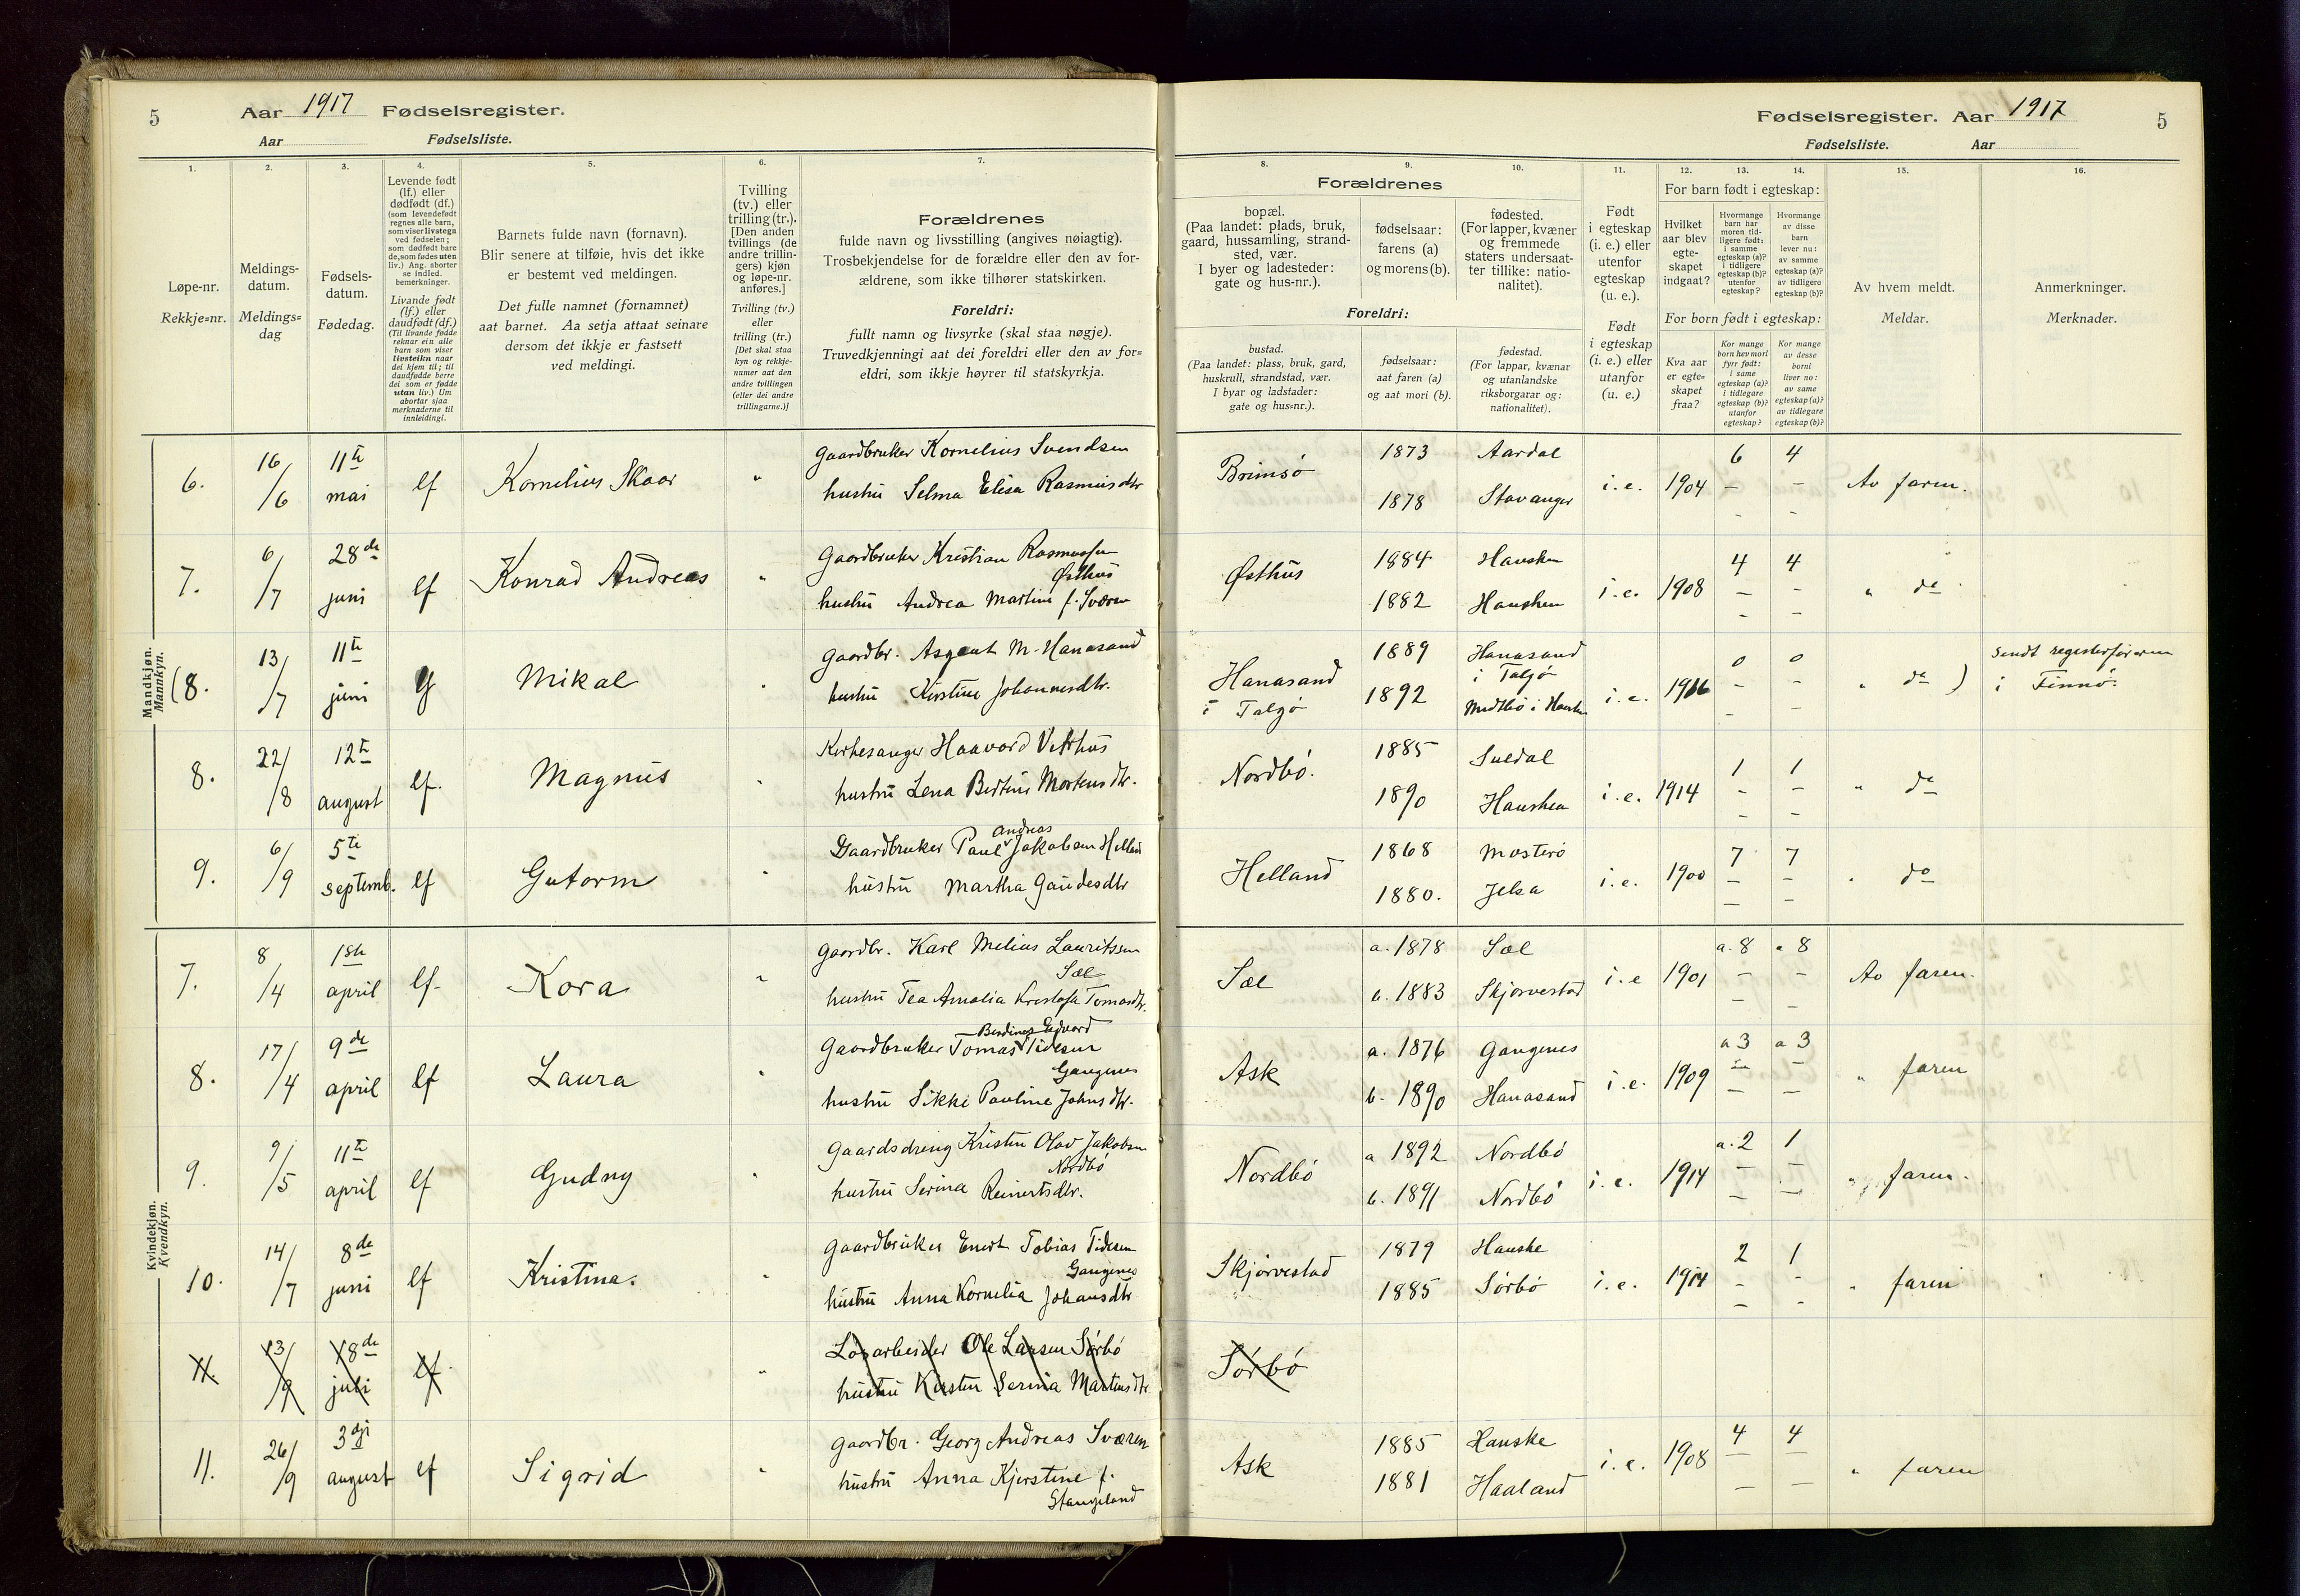 5
Aar 1917 Fødselsregister.
Aar Fødselsliste.
1.
2.
3.
4.
5.
6.
7.
Løpe-nr.
Rekkje=nr.
Meldings-
datum.
Meldings=
dag
Fødsels-
datum.
Fødedag.
Levende født
(lf.) eller
dødfødt (df.)
(som levendefødt
regnes alle barn,
som viser livstegn
ved fødselen;
som dødfødt bare
de, som fødes uten
liv.) Ang. aborter
se indled.
bemerkninger.
Livande født
(lf.) eller
daudfødt (df.)
(Til livande fødde
reknar ein alle
barn som viser
livsteikn naar
dei kjem til; til
daudfødde berre
dei som er fødde
utan liv.) Um
abortar sjaa
merknaderne til
innleidingi.
Barnets fulde navn (fornavn).
Blir senere at tilføie, hvis det ikke
er bestemt ved meldingen.
Det fulle namnet (fornamnet)
aat barnet. Aa setja attaat seinare
dersom det ikkje er fastsett
ved meldingi.
Tvilling
(tv.) eller
trilling (tr.).
[Den anden
tvillings (de
andre trillin-
gers) kjøn
og løpe-nr.
anføres.]
Tvilling (tv.)
eller
trilling (tr.)
[Det skal staa
kyn og rekkje-
numer aat den
andre tvillingen
(eller dei andre
trillingarne.)]
Forældrenes
fulde navn og livsstilling (angives nøiagtig).
Trosbekjendelse for de forældre eller den av for-
ældrene, som ikke tilhører statskirken.
Foreldri:
fullt namn og livsyrke (skal staa nøgje).
Truvedkjenningi aat dei foreldri eller den av for=
eldri, som ikkje høyrer til statskyrkja.
Fødselsregister. Aar 1917
5
Fødselsliste. Aar
8.
9.
10.
11.
12.
13.
14.
15.
16.
Forældrenes
bopæl.
(Paa landet: plads, bruk,
gaard, hussamling, strand-
sted, vær.
I byer og ladesteder:
gate og hus-nr.).
fødselsaar:
farens (a)
og morens (b).
fødested.
(For lapper, kvæner
og fremmede
staters undersaat-
ter tillike: natio-
nalitet).
Foreldri:
bustad.
(Paa landet: plass, bruk, gard,
huskrull, strandstad, vær.
I byar og ladstader:
gate og hus=nr.).
fødselsaar:
aat faren (a)
og aat mori (b).
fødestad.
(For lappar, kvænar
og utanlandske
riksborgarar og:
nationalitet).
Født
i egteskap
(i. e.) eller
utenfor
egteskap
(u. e.).
Født
i egteskap
(i. e.) eller
utanfor
(u. e.)
For barn født i egteskap:
Hvilket
aar blev
egte-
skapet
indgaat?
Hvormange
barn har
moren tid-
ligere født:
i samme
egteskap (a)?
i tidligere
egteskap (b)?
utenfor
egteskap?
Hvormange
av disse
barn
lever nu:
av samme
egteskap (a)?
av tidligere
egteskap (b)?
For born født i egteskap:
Kva aar
er egte=
skapet
fraa?
Kor mange
born hev mori
fyrr født:
i same
egteskap (a)?
i tidlegare
egteskap (b)?
utanfor
egteskap?
Kor mange
av desse
borni
liver no:
av same
egteskap (a)?
av tidlegare
egteskap (b)?
Av hvem meldt.
Meldar.
Anmerkninger.
Merknader.
Mandkjøn.
Mannkyn.
6. 16/6 11te mai lf Kornelius Skaar " Gaardbruker Kornelius Svendsen
hustru Selma Elisa Rasmusdtr
Brimsø 1873 Aardal i.e. 1904 6 4 Av faren.
1878 Stavanger
7. 6/7 28de juni lf Konrad Andreas " Gaardbruker Kristian Rasmussen
Østhus
hustru Andrea Martine f. Sværen
Østhus 1884 Hausken i.e. 1908 4 4 " do
1882 Hausken
(8. 13/7 11te juni lf Mikal " Gaardbr. Asgaut M. Hanasand
hustru Kirstine Johannesdtr.
Hanasand i Talgø 1889 Hanasand i Talgø i.e. 1916 0 0 " do ) Sendt registerføreren
1892 Meltbø i Hausken i Finnø.
8. 22/8 12te august lf. Magnus " Kirkesanger Haavard Vetrhus
hustru Lena Bertine Mortensdtr.
Nordbø. 1885 Suldal i.e. 1914 1 1 " do
1890 Hausken
9. 6/9 5te septemb. lf Gutorm " Gaardbruker Paul Andreas Jakobsen Helland
hustru Martha Gaudesdtr
Helland 1868 Mosterø i.e. 1900 7 7 " do
1880. Jelsa
Kvindekjøn.
Kvendkyn.
7. 8/4 1ste april lf. Kora " Gaardbr. Karl Melius Lauritssen
Sæl
hustru Tea Amalia Kristofa Tomasdtr.
Sæl a. 1878 Sæl i.e 1901 a. 8 a 8 Av faren.
b. 1883 Skjørvestad
8. 17/4 9de april lf Laura " Gaardbruker Tomas Berdines Edvard Tidesen
Gangenes
hustru Sikke Pauline Johnsdtr.
Ask a. 1876 Gangenes i.e. 1909 a 3 a 3 " faren
b. 1890 Hanasand
9. 9/5 11te april lf Gudny " Gaardsdreng Kristen Olav Jakobsen
Nordbø
hustru Serina Reinertsdtr.
Nordbø a 1892 Nordbø i.e. 1914 a. 2 1 " faren.
b. 1891 Nordbø
10. 14/7 8de juni lf Kristina. " Gaardbruker Enert Tobias Tidesen
Gangenes
hustru Anna Kornelia Johansdtr
Skjørvestad 1879 Hauske i.e. 1914 2 1 " faren
1885 Sørbø
11. 13/9 18de juli lf. " Løsarbeider Ole Larsen Sørbø
hustru Kirsten Serina Martinsdtr.
Sørbø
11. 26/9 3dje august lf Sigrid " Gaardbr. Georg Andreas Sværen
hustru Anna Kjerstine f.
Stangeland
Ask 1885 Hauske i.e. 1908 4 4 " faren
1881 Haaland